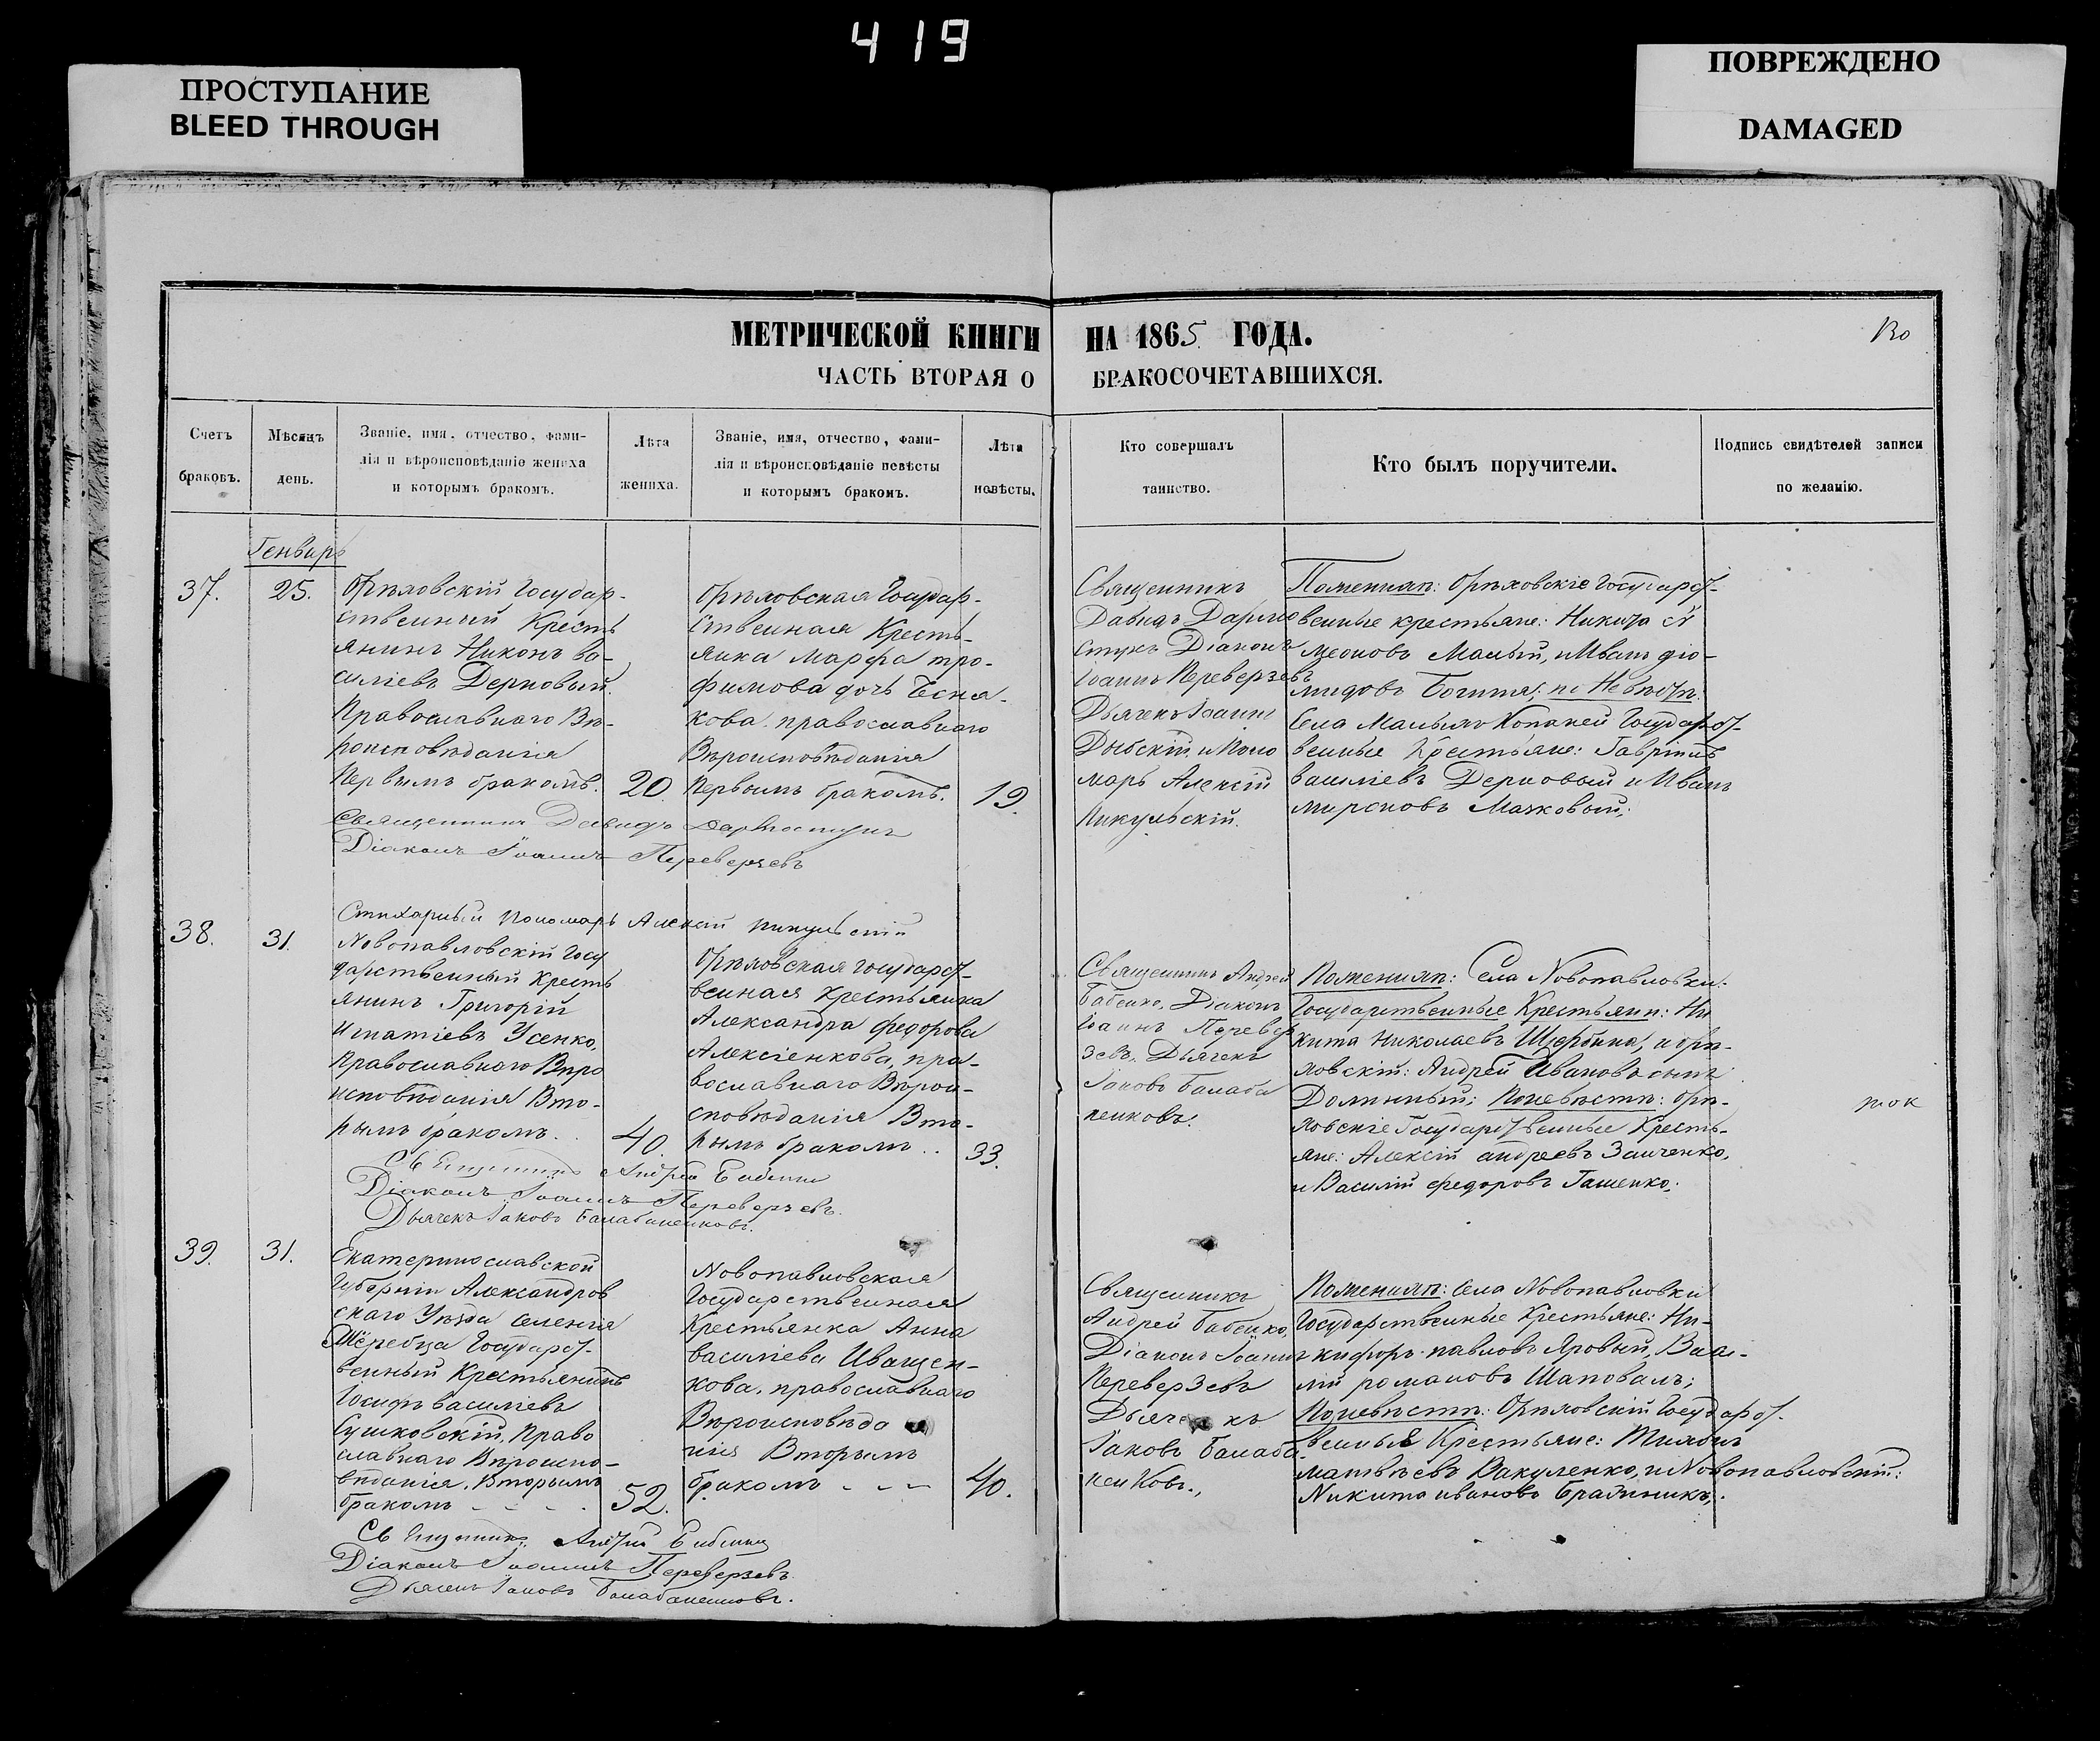 419
ПРОСТУПАНИЕ
BLEED THROUGH
ПОВРЕЖДЕНО
DAMAGED
МЕТРИЧЕСКОЙ КНИГИ НА 1865 ГОДА.
ЧАСТЬ ВТОРАЯ О БРАКОСОЧЕТАВШИХСЯ.
Счетъ
браковъ.
Мѣсяцъ
день.
Званіе, имя, отчество, фами-
лія и вѣроисповѣданіе жениха
и которымъ бракомъ.
Лѣта
жениха.
Званіе, имя, отчество, фами-
лія и вѣроисповѣданіе невѣсты
и которымъ бракомъ.
Лѣта
невѣсты.
Кто совершалъ
таинство.
Кто былъ поручители.
Подпись свидѣтелей записи
по желанію.
Генварь
37.
25.
Орѣховскій Государ-
ственный Кресть
янинъ Никонъ ва-
силіевъ Дерновый.
Православнаго Вѣ-
роисповѣданія
Первымъ бракомъ.
20
Орѣховская Государ-
ственная Кресть-
янка Марфа тро-
фимова дочь Чсня-
кова православнаго
Вѣроисповѣданія
Первымъ бракомъ.
19.
Священникъ
Давидъ Дармо
стукъ Діаконъ
Іоаннъ Переверзевъ
Дьячекъ Іоаннъ
Дыбскій и Поно
марь Алексій
Пикульскій.
По женихѣ: Орѣховскіе Государст-
венные крестьяне: Никита си
меоновъ Малый, и Иванъ діо-
мидовъ по Невѣстѣ.
Села Малыхъ Копаней Государст-
венные Крестьяне: Гавріилъ
василіевъ Дерновый и Иванъ
мироновъ Мажковый;
Священникъ Давидъ Дармостукъ
Діаконъ Іоаннъ Переверзевъ
Стихарный Пономарь Алексій Пикульскій
38.
31.
Новопавловскій Госу
дарственный Кресть
янинъ Григорій
Игнатіевъ Усенко,
Православнаго Вѣро
исповѣданія Вто-
рымъ бракомъ. .
40.
Орѣховская государст-
венная крестьянка
Александра федорова
Алексіенкова, пра-
вославнаго Вѣрои-
споведанія Вто-
рымъ бракомъ . .
33.
Священникъ Андрей
Бабенко, Діаконъ
Іоаннъ Перевер
зевъ, Дьячекъ
Іаковъ Балаба
ненковъ.
По женихѣ: Села Новопавловки.
Государственные Крестьяни: Ни
кита Николаевъ Щербина, и орѣ-
ховскій: Андрей Ивановъ сынъ
Долинный; По невѣстѣ: Орѣ-
ховскіе Государственные Кресть-
яне: Алексій андреевъ Заиченко,
и Василій федоровъ Гашенко.
Священникъ Андрей Бабенко
Діаконъ Іоаннъ Переверзевъ.
Дьячекъ Іаковъ Балабаненковъ.
39.
31.
Екатеринославской
Губерніи Александров
скаго Уѣзда селенія
Жеребца Государст-
венный Крестьянинъ
Іосифъ василіевъ
Сушковскій, Право
славнаго Вѣроиспо-
вѣданія, Вторымъ
бракомъ - - -
52.
Новопавловская
Государственная
Крестьянка Анна
василіева Иващен-
кова, православнаго
Вѣроисповѣда
нія Вторымъ
бракомъ - - -
40.
Священникъ
Андрей Бабенко,
Діаконъ Іоаннъ
Переверзевъ
Дьячекъ
Іаковъ Балаба
ненковъ.,
По женихѣ: Села Новопавловки
Государственные Крестьяне: Ни-
кифоръ павловъ Яровый, Васи-
лій романовъ Шаповалъ;
По невѣстѣ: Орѣховскій Государст-
венные Крестьяне: Тихонъ
матвѣевъ Вакуленко, и Новопавловскій:
Никита ивановъ Братникъ.
Священникъ Андрей Бабенко
Діаконъ Іоаннъ Переверзевъ
Дьячекъ Іаковъ Балабаненковъ.